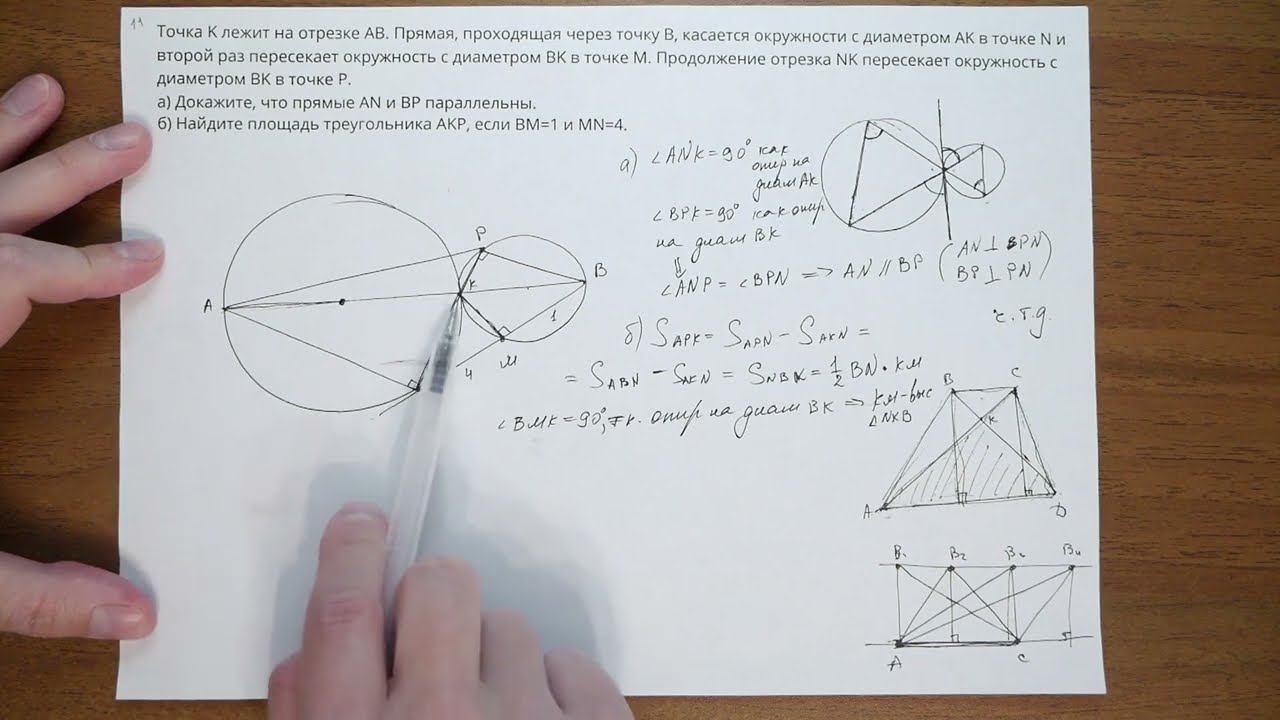 11
Точка K лежит на отрезке AB. Прямая, проходящая через точку B, касается окружности с диаметром AK в точке N и
второй раз пересекает окружность с диаметром BK в точке M. Продолжение отрезка NK пересекает окружность с
диаметром BK в точке P.
а) Докажите, что прямые AN и BP параллельны.
б) Найдите площадь треугольника AKP, если BM=1 и MN=4.
а) ∠ANK=90° как
опир на
диам AK
∠BPK=90° как опир
на диам BK
⇓
∠ANP = ∠BPN => AN // BP (AN⊥PN
BP⊥PN)
ч.т.д.
б) S APK = S APN − S AKN =
= S ABN − S AKN = S NBK = 1/2 BN · KM
∠BMK=90°, т.к. опир на диам BK => KM-выс
△NKB
A
P
K
B
1
M
4
B
C
K
A
D
B1
B2
B3
B4
A
C